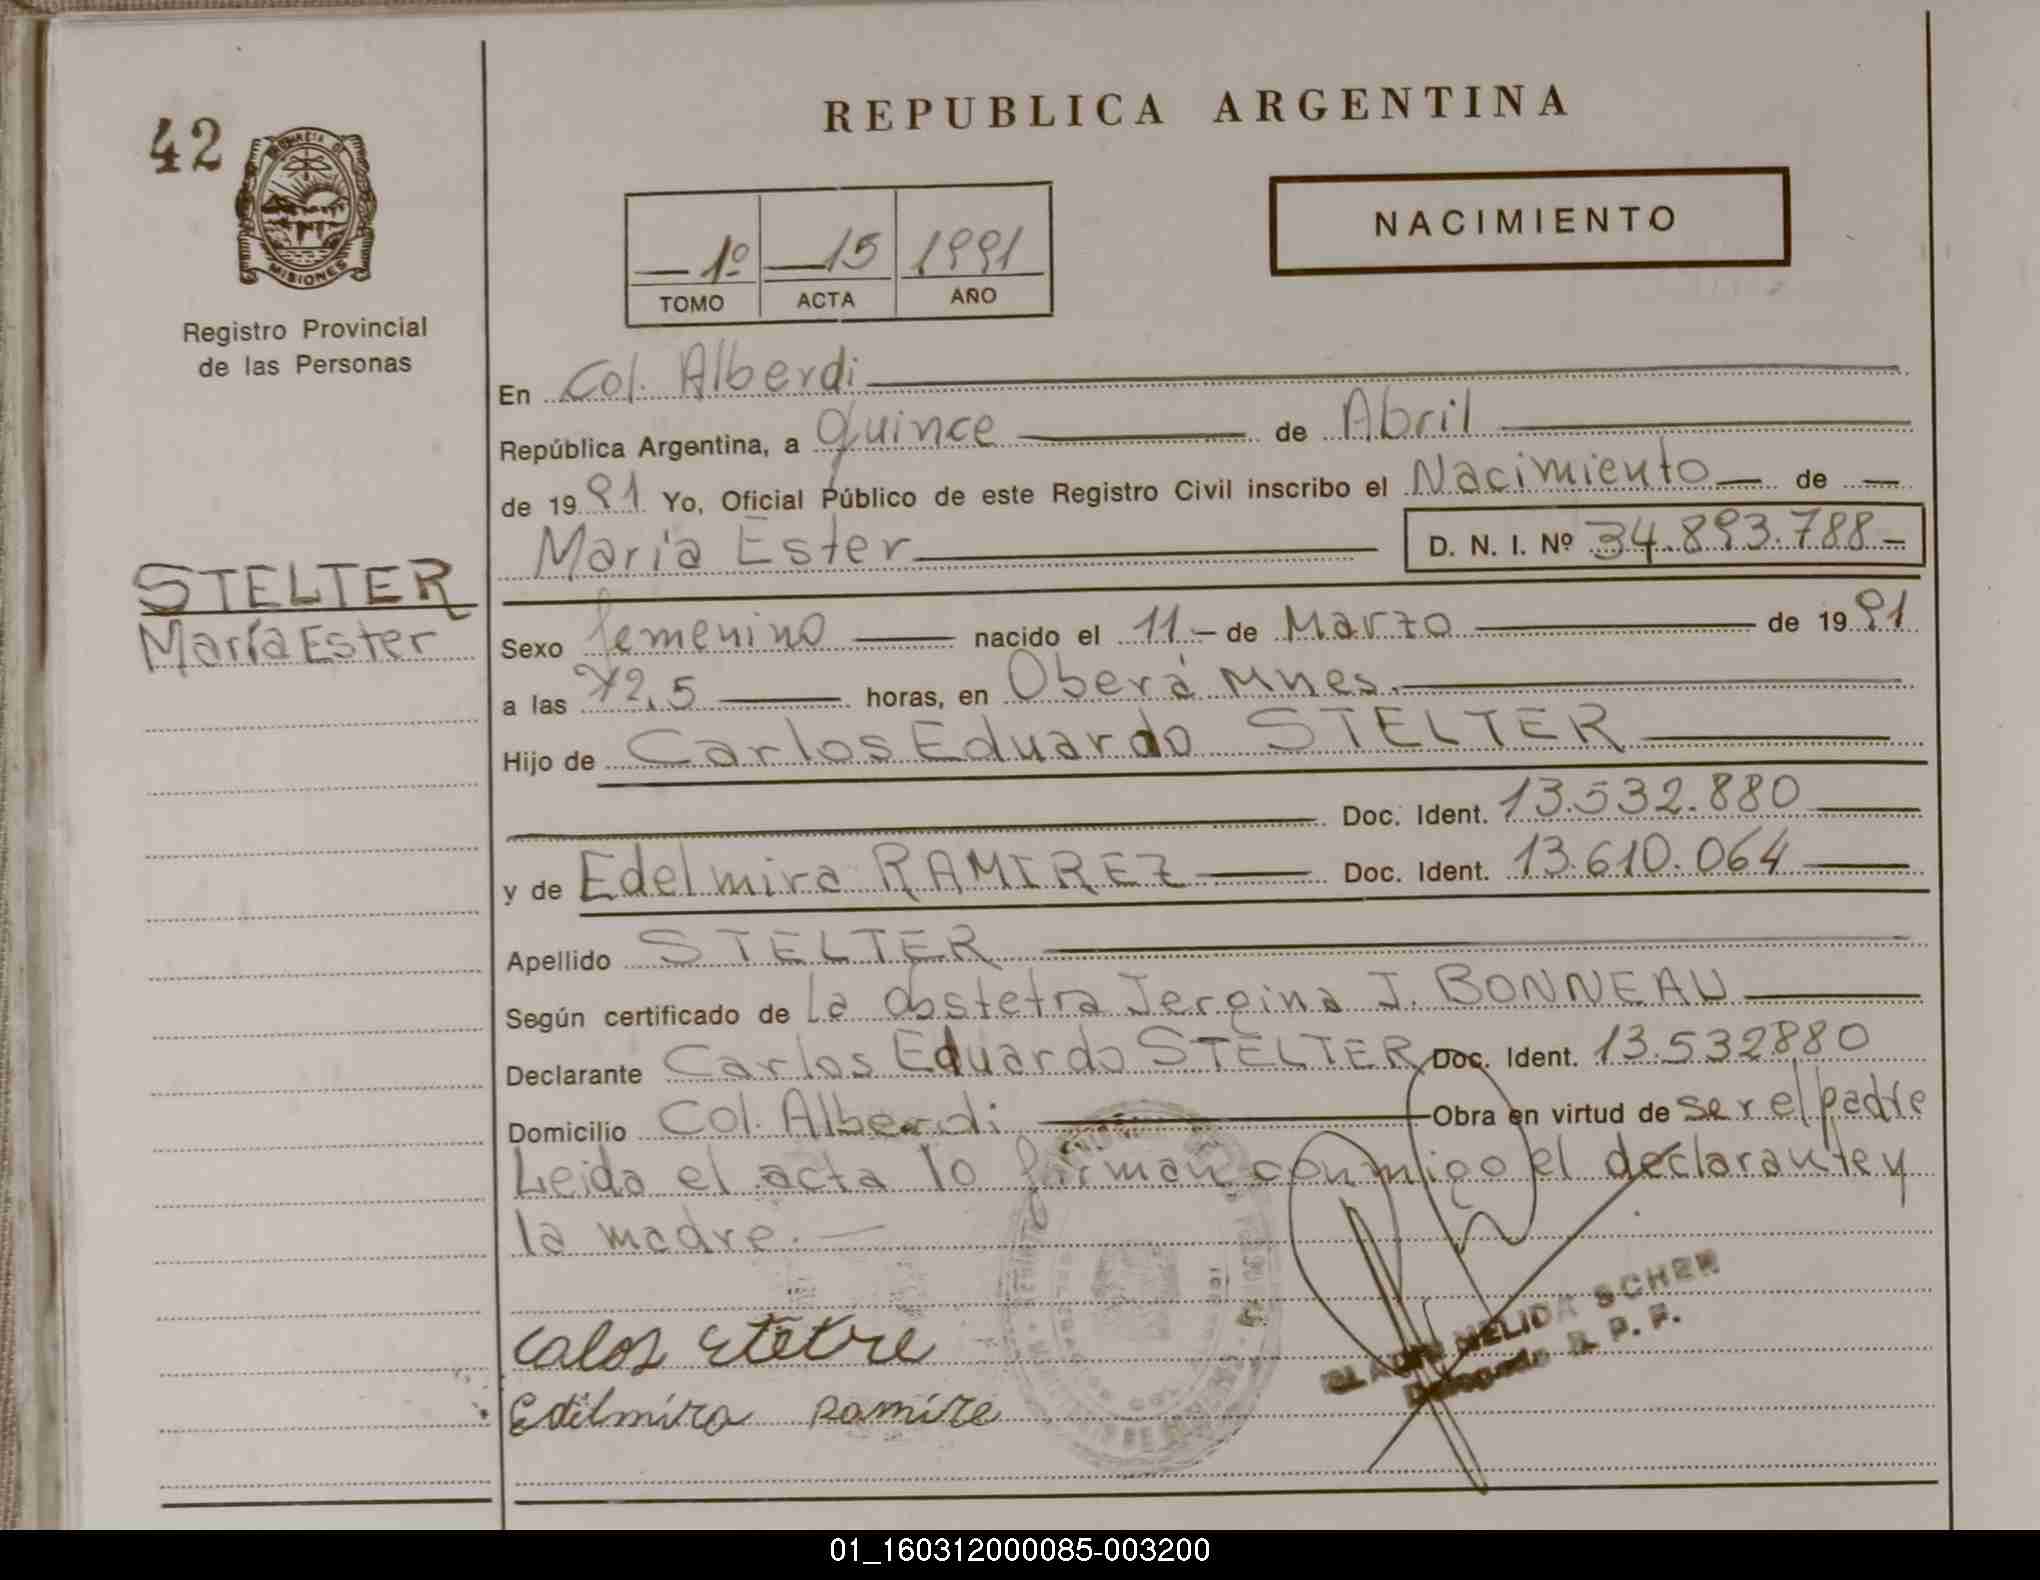 42
REPUBLICA ARGENTINA
NACIMIENTO
1º 15 1991
TOMO ACTA AÑO
MISIONES
Registro Provincial
de las Personas
En Col. Alberdi
República Argentina, a quince de Abril
de 1991 Yo, Oficial Público de este Registro Civil inscribo el Nacimiento de
María Ester D. N. I. Nº 34.893.788
STELTER
María Ester
Sexo femenino nacido el 11 de Marzo de 1991
a las horas, en Oberá Mnes.
Hijo de Carlos Eduardo STELTER
Doc. Ident. 13.532.880
y de Edelmira RAMIREZ Doc. Ident. 13.610.064
Apellido STELTER
Según certificado de la obstetra J. BONNEAU
Declarante Carlos Eduardo STELTER Doc. Ident. 13.532880
Domicilio Col. Alberdi Obra en virtud de ser el padre
Leida el acta lo firman conmigo el declarante y
la madre.
Calos
Edilmira Ramire
NELIDA
Delegada R. P. P.
01_160312000085-003200